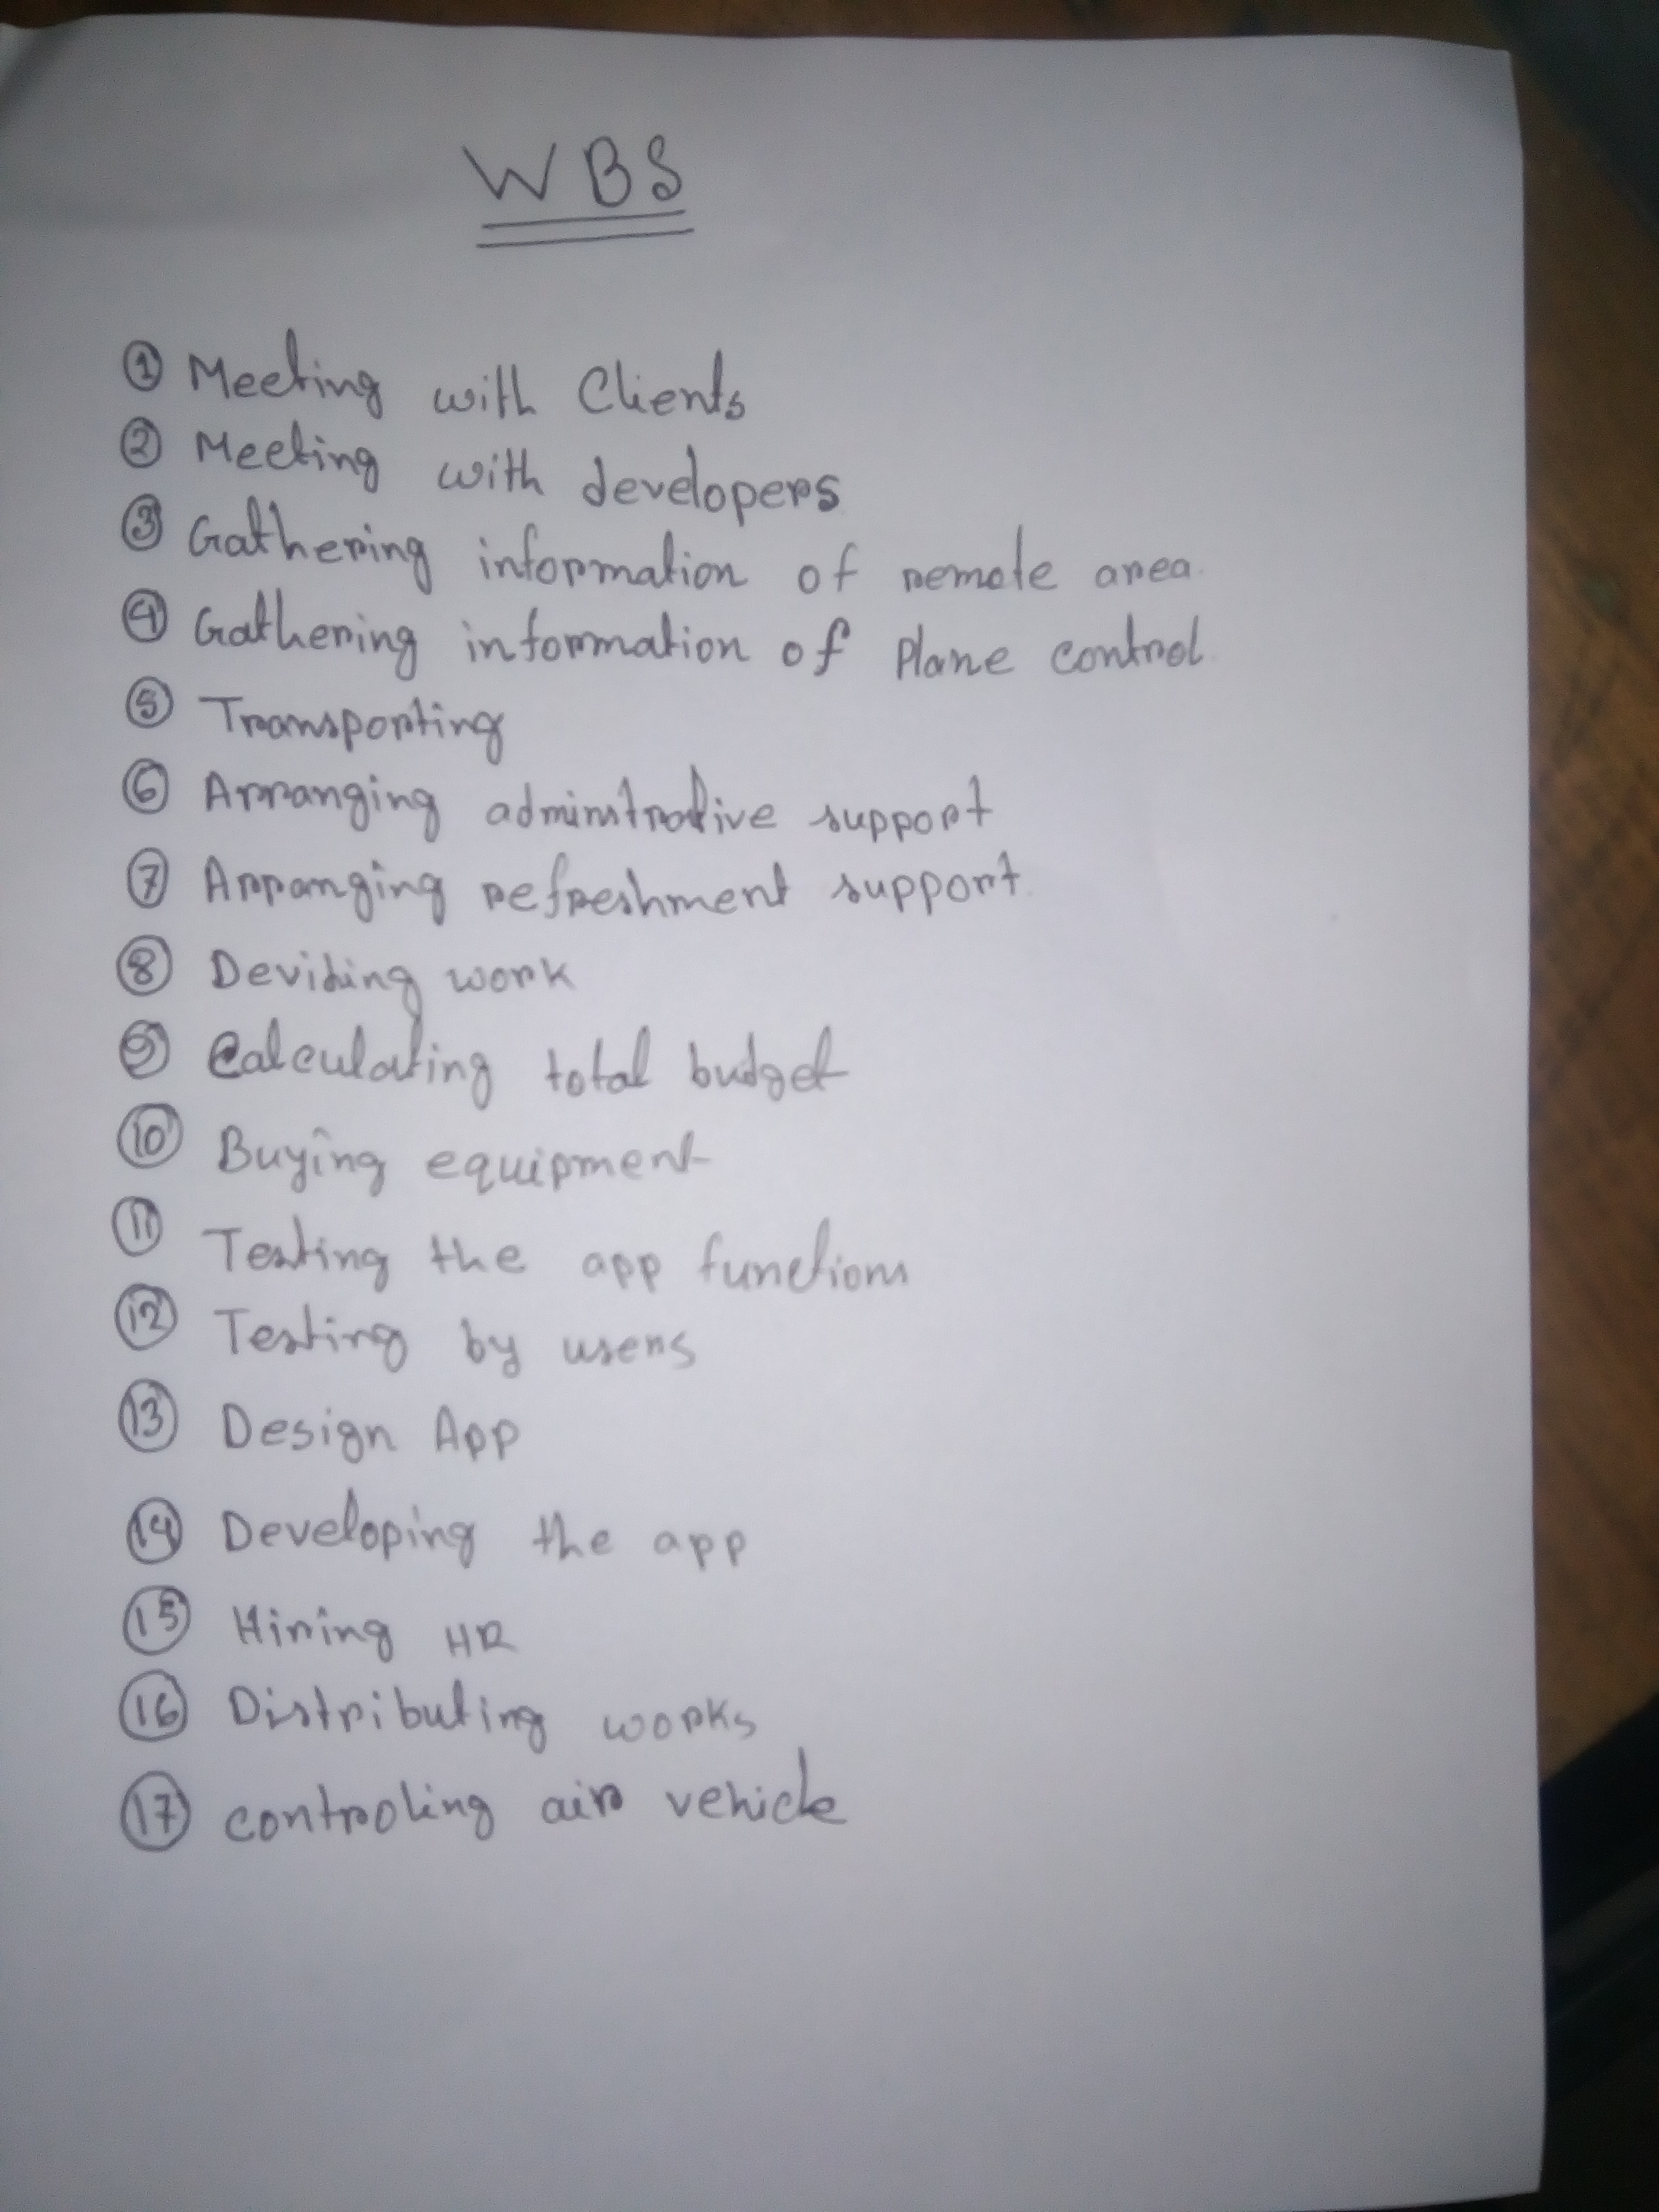 WBS
① Meeting with Clients
② Meeting with developers
③ Gathering information of remote area.
④ Gathering information of Plane control.
⑤ Transporting
⑥ Arranging adminstrative support
⑦ Arranging refreshment support.
⑧ Deviding work
⑨ Calculating total budget
⑩ Buying equipment
⑪ Testing the app functions
⑫ Testing by users
⑬ Design App
⑭ Developing the app
⑮ Hiring HR
⑯ Distributing works
⑰ controling air vehicle